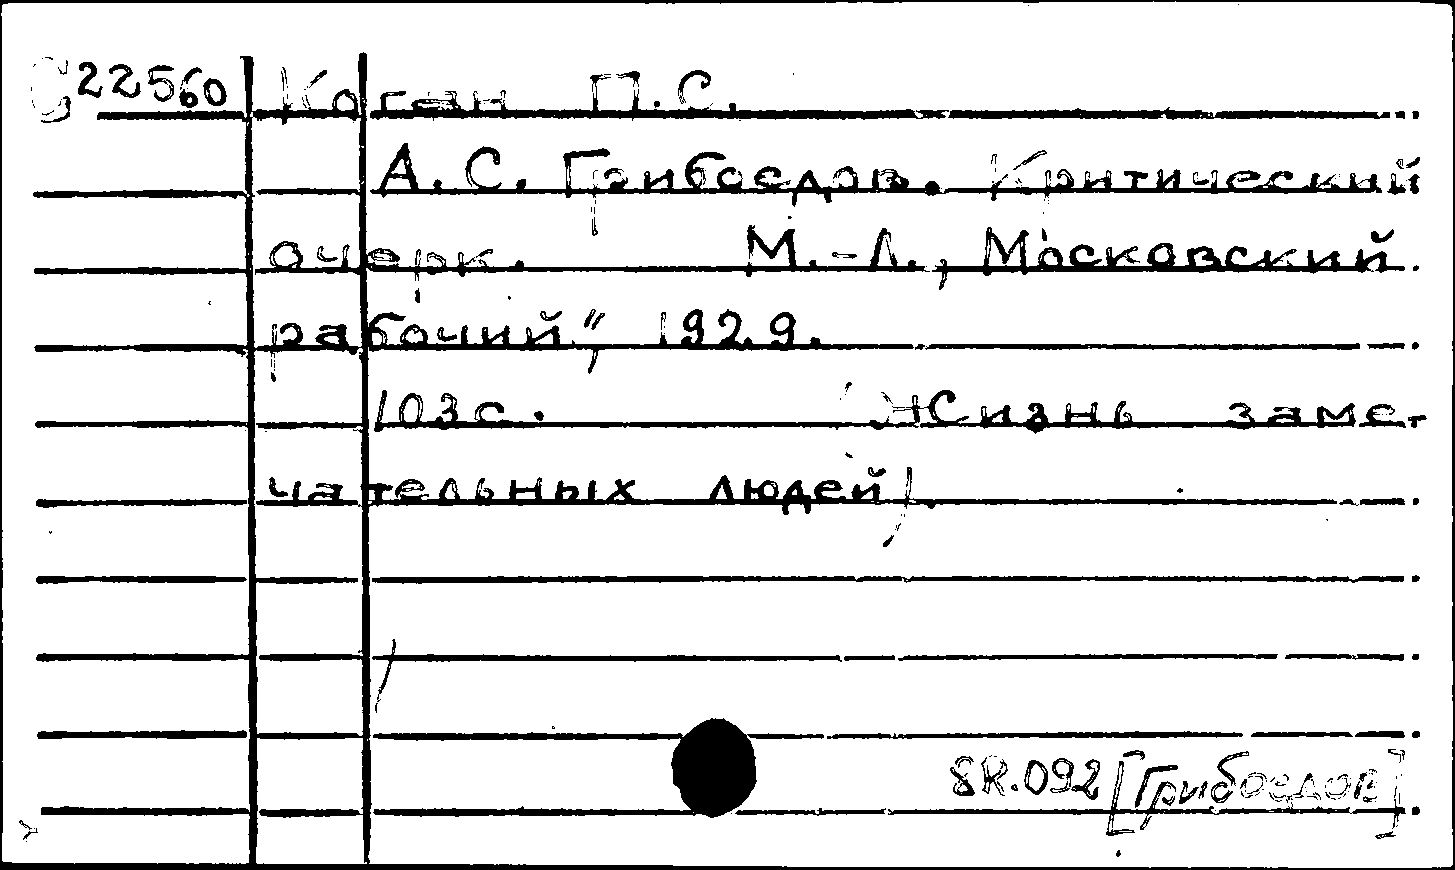 С22560 Коган П.С.
А.С. Грибоедов. Критический
очерк. М.-Л., Московский
рабочий", 1929.
103с. (Жизнь заме-
чательных людей).
8R.092 [Грибоедов]